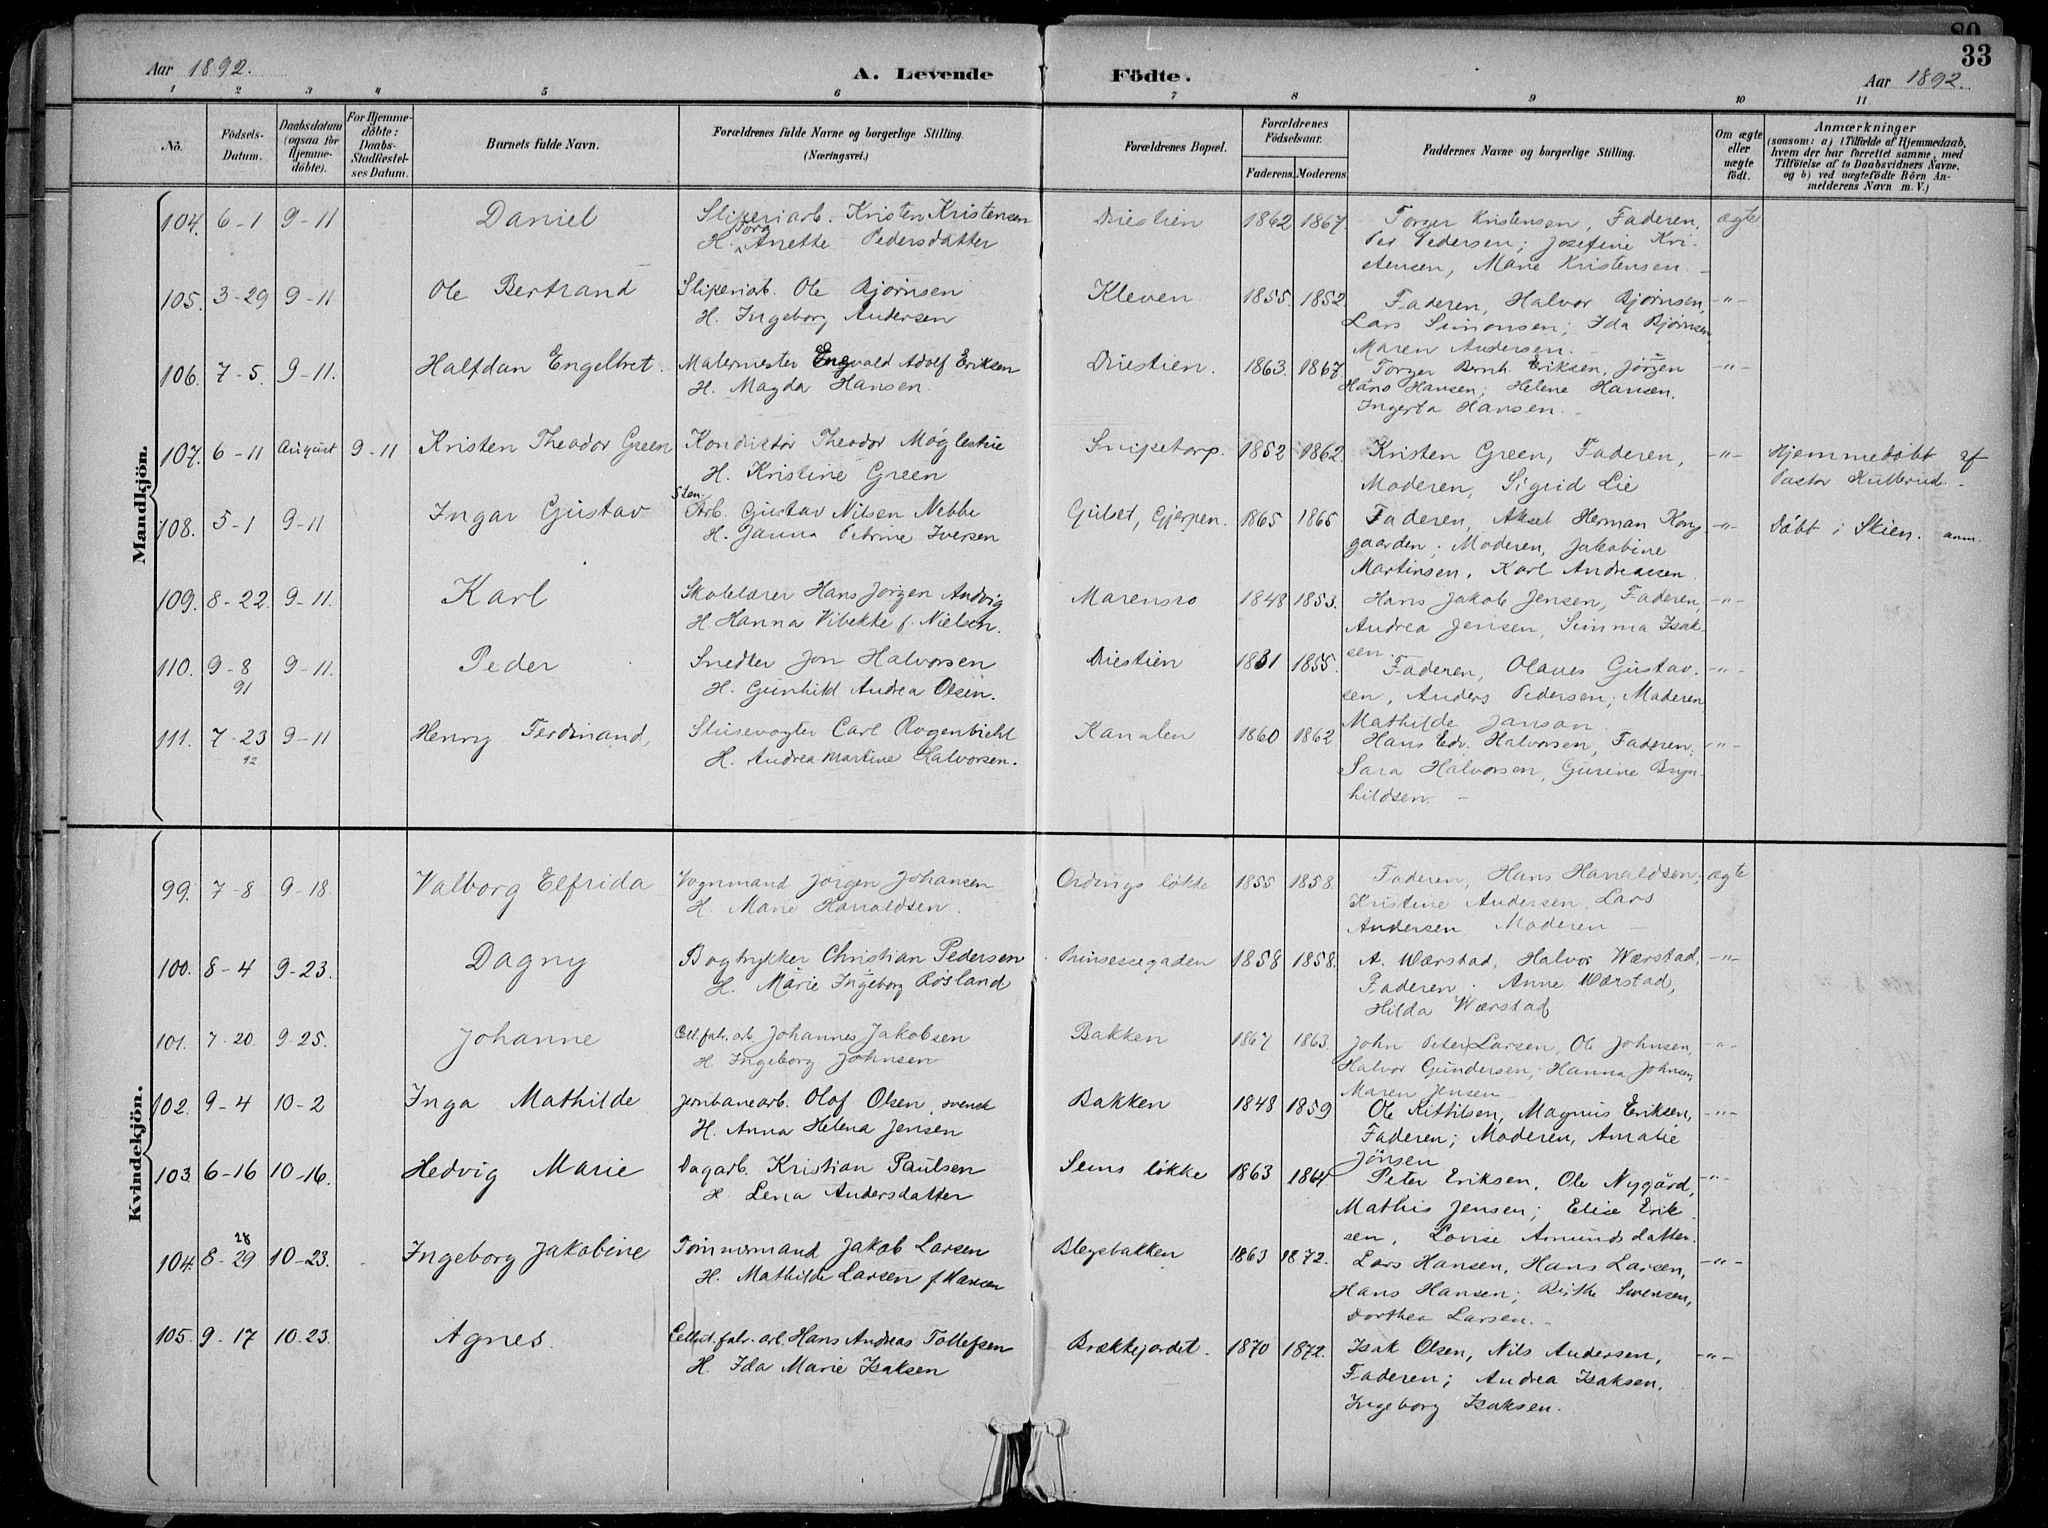 80
33
Aar 1892.
A. Levende Födte.
Aar 1892.
1 2 3 4 5 6 7 8 9 10 11
No.
Födsels-Datum.
Daabsdatum (ogsaa for Hjemmedöbte).
For Hjemmedöbte: Daabs-Stadfæstelses Datum.
Barnets fulde Navn.
Forældrenes fulde Navne og borgerlige Stilling. (Næringsvei.)
Forældrenes Bopæl.
Forældrenes Födselsaar.
Faderens. Moderens.
Faddernes Navne og borgerlige Stilling.
Om ægte eller uægte födt.
Anmærkninger
(saasom: a) i Tilfælde af Hjemmedaab, hvem der har forrettet samme, med Tilföielse af to Daabsvidners Navne, og b) ved uægtefödte Börn Anmelderens Navn m. V.)
Mandkjön.
104. 6-1 9-11 Daniel Sliperiarb. Kristen Kristensen Duestien 1862 1867. Torger Kristensen, Faderen, ægte
H. Tora Anette Pedersdatter Per Pedersen; Josefine Kri-
stensen, Marie Kristensen.
105. 3-29 9-11 Ole Bertrand Sliperiarb. Ole Bjørnsen Kleven. 1855. 1852. Faderen, Halvor Bjørnsen, -"-
H. Ingeborg Andersen Lars Simonsen; Ida Bjørnsen
Maren Andersen.
106. 7-5. 9-11. Halfdan Engelbret. Malermester Engvald Adolf Eriksen Duestien. 1863. 1867. Torger Bernh. Eriksen, Jørgen -"-
H. Magda Hansen. Hans Hansen; Helene Hansen.
Ingerta Hansen.
107. 6-11 August 9-11 Kristen Theodor Green Konduktør Theodor Møglestue Snipetorp. 1852 1862. Kristen Green, Faderen, -"- Hjemmedøbt af
H. Kristine Green Moderen, Sigrid Lie Pastor Hutterud.
108. 5-1 9-11 Ingar Gustav Stenarb. Gustav Nilsen Nebbe Gulset, Gjerpen. 1865 1865 Faderen, Aksel Herman Kong- -"- Døbt i Skien. anm.
H. Janna Petrine Iversen gaarden; Moderen, Jakobine
Martinsen, Karl Andreasen.
109. 8-22. 9-11. Karl Skolelærer Hans Jørgen Andvig Marensro 1848 1853. Hans Jakob Jensen, Faderen, -"-
H. Hanna Vibekke f. Nielsen. Andrea Jensen, Simma Isak-
sen.
110. 9-8 91 9-11. Peder Snedker Jon Halvorsen Duestien 1831 1855. Faderen, Olaves Gustav- -"-
H. Gunhild Andrea Olsen. sen, Anders Pedersen; Moderen
Mathilde Janson
111. 7-23 92 9-11 Henry Ferdinand, Slusevogter Carl Rogenbicht Kanalen 1860 1862 Hans Edv. Halvorsen, Faderen, -"-
H. Andrea Martine Halvorsen. Sara Halvorsen, Gurine Bryn-
hildsen.
Kvindekjön.
99. 7-8 9-18. Valborg Elfrida Vognmand Jørgen Johansen Ordings løkke 1855 1858. Faderen, Hans Haraldsen; ægte
H. Marie Haraldsen. Kristine Andersen, Lars
Andersen Moderen
100. 8-4 9-23. Dagny Bogtrykker Christian Pedersen Prinsessegaden 1858 1858. A. Wærstad, Halvor Wærstad, -"-
H. Marie Ingeborg Røsland Faderen; Anne Wærstad,
Hilda Wærstad
101. 7-20. 9-25. Johanne Cell.fabr.arb. Johannes Jakobsen Bakken 1867 1863. John Peter Larsen, Ole Johnsen, -"-
H. Ingeborg Johnsen Halvor Gundersen; Hanna Johnsen,
Maren Jensen
102. 9-4 10-2 Inga Mathilde Jernbanearb. Olof Olsen, svensk Bakken 1848 1859 Ole Kittilsen, Magnus Eriksen, -"-
H. Anna Helena Jensen Faderen; Moderen, Amalie
Jønsen
103. 6-16 10-16. Hedvig Marie Dagarb. Kristian Paulsen Sems løkke 1863 1864. Peter Eriksen, Ole Nygård, -"-
H. Lena Andersdatter Mathis Jensen; Elise Erik-
sen, Lovise Amundsdatter.
104. 8-29 28 10-23. Ingeborg Jakobine Tømmermand Jakob Larsen Blegebakken 1863 1872. Lars Hansen, Hans Larsen, -"-
H. Mathilde Larsen f. Hansen Hans Hansen; Birthe Svensen,
Dorthea Larsen.
105. 9-17 10.23. Agnes. Cellul.fabr.arb. Hans Andreas Tollefsen Brækkejordet. 1870 1872. Isak Olsen, Nils Andersen, -"-
H. Ida Marie Isaksen Faderen; Andrea Isaksen.
Ingeborg Isaksen.